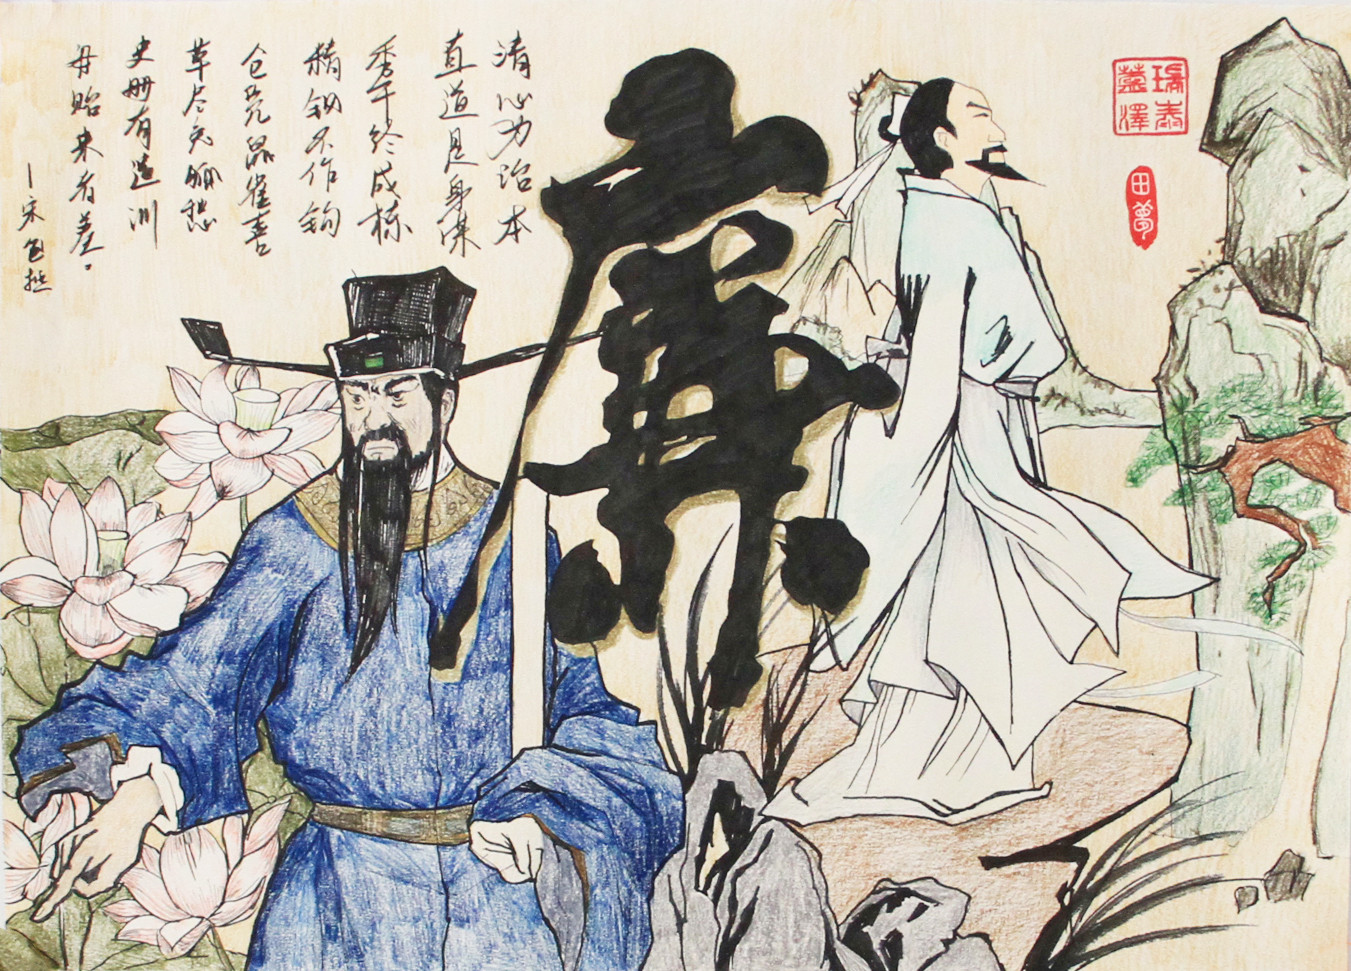 廉
清心为治本
直道是身谋
秀干终成栋
精钢不作钩
仓充鼠雀喜
草尽兔狐愁
史册有遗训
毋贻来者羞。
—宋包拯